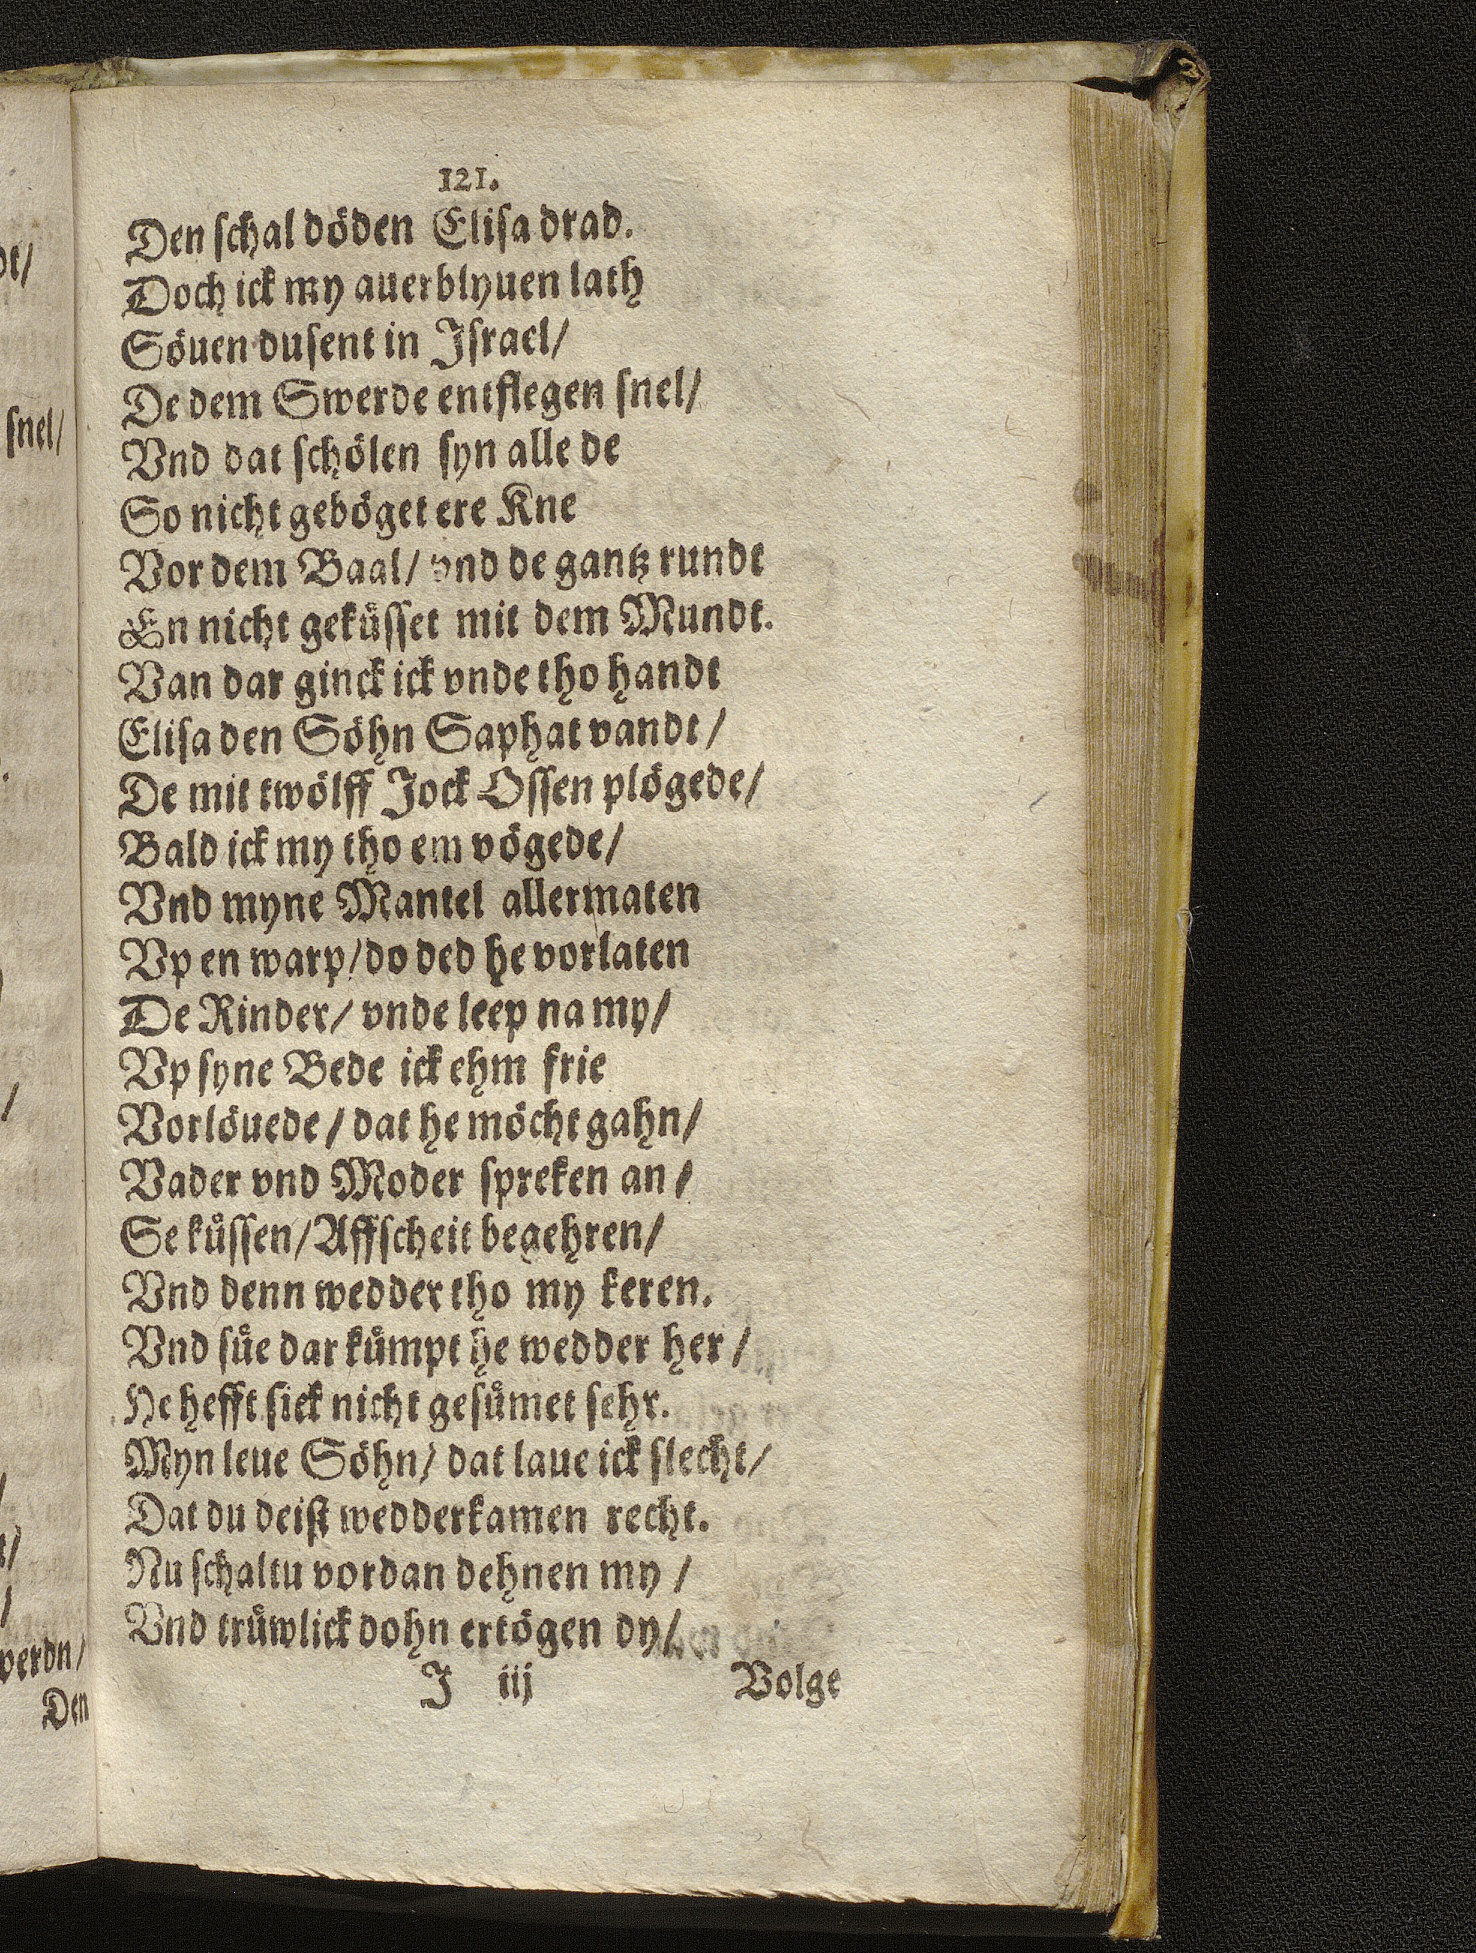 121.
Den ſchal döden Eliſa drad.
Doch ick my auerblyuen lath
Söuen duſent in Iſrael/
De dem Swerde entflegen ſnel/
Vnd dat ſchölen ſyn alle de
So nicht geböget ere Kne
Vor dem Baal/ vnd de gantz rundt
En nicht geküſſet mit dem Mundt.
Van dar ginck ick vnde tho handt
Eliſa den Söhn Saphat vandt/
De mit twölff Jock Oſſen plögede/
Bald ick my tho em vögede/
Vnd myne Mantel allermaten
Vp en warp/ do ded he vorlaten
De Rinder/ vnde leep na my/
Vp ſyne Bede ick ehm frie
Vorlöuede/ dat he möcht gahn/
Vader vnd Moder ſpreken an/
Se kuͤſſen/ Affſcheit begehren/
Vnd denn wedder tho my keren.
Vnd ſuͤe dar kuͤmpt he wedder her/
He hefft ſick nicht geſuͤmet ſehr.
Myn leue Söhn/ dat laue ick ſlecht/
Dat du deiſt wedderkamen recht.
Nu ſchaltu vordan dehnen my/
Vnd truͤwlick dohn ertögen dy/
J iij Volge
ſnel/
verdn/
Den